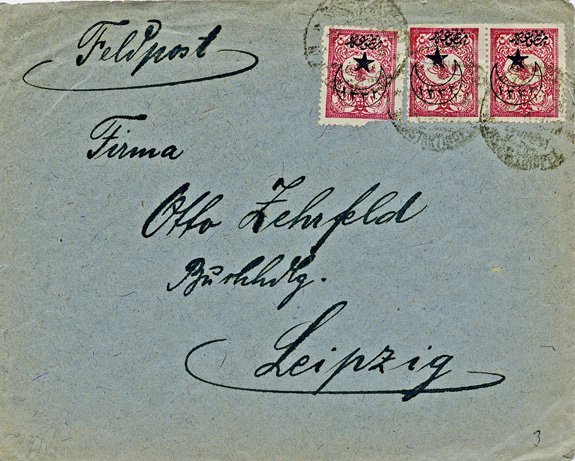 Feldpost
Firma
Otto Zehrfeld
Buchhdlg.
Leipzig
3